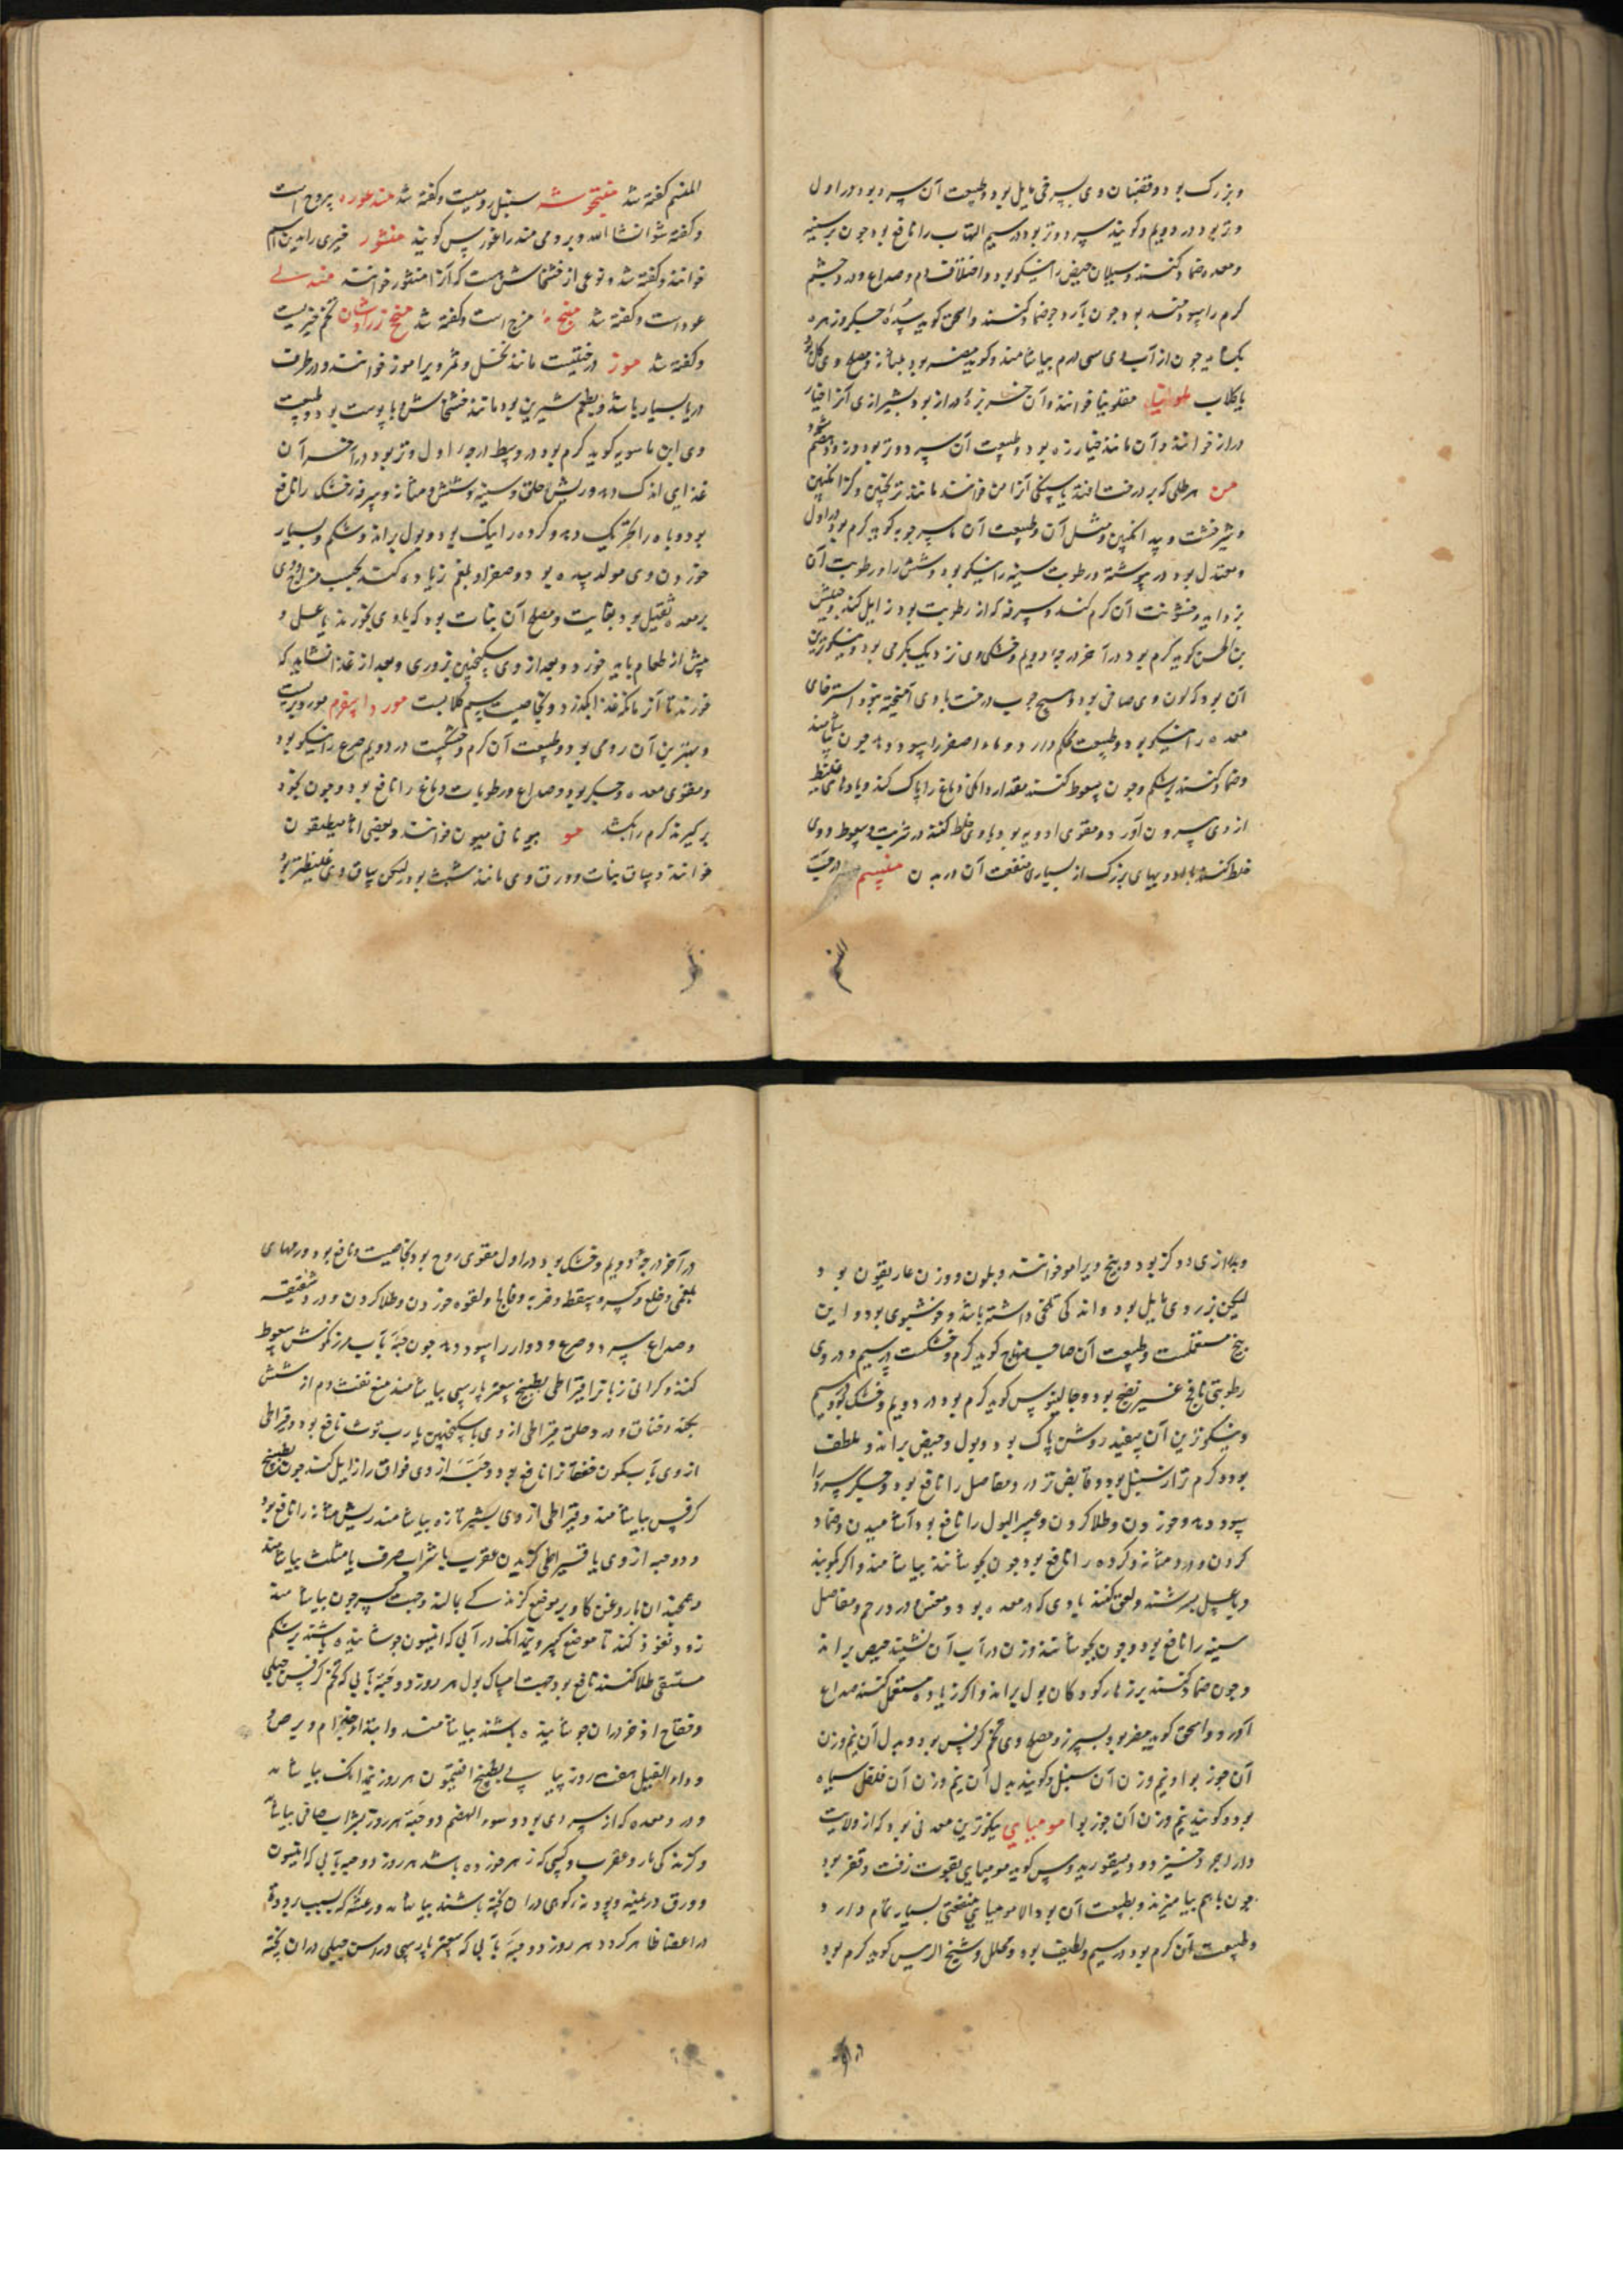 و بزرک بود و قضبان وی بسرخی مایل بود و طبیعت آن سرد بود در اول
و تر بود در دویم و کویند سرد و تر بود در سیم التهاب را نافع بود چون بر سینه
و معده ضماد کنند و سیلان حیض را نیکو بود و اختلاف دم و صداع و درد چشم
کرم را سود مند بود چون بآرد جو ضماد کنند و اسحق کوید سده جکر و زهره
بکشاید چون از آب وی سی درم بیاشامند و کویند مضر بود بمثانه و مصلح وی
یا کلاب مقلوبیا خوانند و آن خربزه دراز بود بشیرازی آنرا خیار
دراز خوانند و آن مانند خیارزه بود و طبیعت آن سرد و تر بود و زود هضم شود
من هر طلی که بر درخت افتد یا سنکی آنرا من خوانند مانند ترنجبین و کزانکبین
و شیرخشت و بید انکبین و مثل آن و طبیعت آن ماسرجویه کوید کرم بود در اول
و معتدل بود در رطوبت سینه را نیکو بود و شش را و رطوبت آن
بزداید و خشونت آن کرم کند و سرفه که از رطوبت بود زایل کند و حبیش
بن الحسن کوید کرم بود در آخر درجه دویم و خشکی وی نزدیک بکرمی بود و نیکوترین
آن بود که لون وی صافی بود و هیچ چوب درخت با وی آمیخته نبود استرخای
معده را نیکو بود و طبیعت محکم دارد و ماده اصفر را سود دهد چون بیاشامند
و ضماد کنند بر شکم و چون سعوط کنند مقدار دانکی دماغ را پاک کند و بادهای غلیظ
از وی بیرون آورد و مقوی ادویه بود با وی خلط کنند در شربت و سعوط و وی
خلط کنند با داروهای بزرک از بسیاری منفعت آن در بدن در حب
المنسم کفته شد سنبل رومیست و کفته شد یبروح است
و کفته شود انشا الله و برومی مندراغورس کویند منثور خیری را بدین اسم
خوانند و کفته شد و نوعی از خشخاش هست که آنرا منثور خوانند مندلی
عود است و کفته شد منج است و کفته شد تخم خیریست
و کفته شد موز درختیست مانند نخل و ثمر ویرا موز خوانند و در طرف
دریا بسیار باشد و بطعم شیرین بود مانند خشخاش با پوست بود و طبیعت
وی ابن ماسویه کوید کرم بود در وسط درجه اول و تر بود در آخر آن
غذایی اندک دهد و ریش حلق و سینه و شش و مثانه و سرفه خشک را نافع
بود و باه را تحریک دهد و کرده را نیک بود و بول براند و شکم و بسیار
خوردن وی مولد سده بود و صفرا و بلغم زیاده کند بحسب مزاج و وی
بر معده ثقیل بود بغایت و مصلح آن نبات بود که با وی بخورند یا عسل و
پیش از طعام باید خورد و بعد از وی سکنجبین بزوری و بعد از غذا نشاید که
خورند تا آنزمانکه غذا بکذرد و بخاصیت سم کلابست مورد اسفرم
و بهترین آن رومی بود و طبیعت آن کرم و خشکست در دویم صرع را نیکو بود
و مقوی معده و جکر بود و صداع و رطوبات دماغ را نافع بود و چون بخود
برکیرند کرم را بکشد مو بیونانی میون خوانند و بعضی اثامیطیقون
خوانند و ساق نبات و ورق وی مانند شبث بود لیکن ساق وی غلیظتر بود
و بدرازی دو کز بود و بیخ ویرا مو خوانند و بلون و وزن غاریقون بود
لیکن بزردی مایل بود و اندکی تلخی داشته باشد و خوشبوی بود و این
بیخ مستعملست و طبیعت آن صاحب منهاج کوید کرم و خشکست در سیم و در وی
رطوبتی نافع غیر نضیج بود و جالینوس کوید کرم بود در دویم و خشک بود در سیم
و نیکوترین آن سفید روشن پاک بود و بول و حیض براند و ملطف
بود و کرم تر از سنبل بود و قابض تر درد مفاصل را نافع بود و جکر سرد را
سود دهد و خوردن و طلا کردن و عسر البول را نافع بود آشامیدن و ضماد
کردن و درد مثانه و کرده را نافع بود چون بجوشانند بیاشامند و اکر بکوبند
و با عسل بسرشند و لعق کنند بادی که در معده بود و مغص و درد رحم و مفاصل
سینه را نافع بود و چون بجوشانند و زن در آب آن نشیند حیض براند
و چون ضماد کنند بر زهار کودکان بول براند و اکر زیاده مستعمل کنند صداع
آورد و اسحق کوید مضر بود بسپرز و مصلح وی تخم کرفس بود و بدل آن نیم وزن
آن جوز بوا و نیم وزن آن سنبل و کویند بدل آن نیم وزن آن فلفل سیاه
بود و کویند نیم وزن آن جوز بوا مومیایی نیکوترین معدنی بود که از ولایت
دارابجرد خیزد و دیسقوریدوس کوید مومیایی بقوت زفت و قفر بود
چون باهم بیامیزند و بطبیعت آن بود الا مومیایی منفعتی بسیار تمام دارد
و طبیعت آن کرم بود در سیم و لطیف بود و محلل و شیخ الرییس کوید کرم بود
در آخر درجه دویم و خشک بود در اول مقوی روح بود بخاصیت و نافع بود ورمهای
بلغمی و خلع و کسر و سقطه و ضربه و فالج و لقوه خوردن و طلا کردن و درد شقیقه
و صداع سرد و صرع و دوار را سود دهد چون حبه بآب مرزنکوش سعوط
کنند و کرانی زبانرا قیراطی بطبیخ سعتر پارسی بیاشامند منع نفث دم از شش
بکند و خناق و درد حلق قیراطی از وی با سکنجبین یا رب توت نافع بود و قیراطی
از وی بآب کمون خفقانرا نافع بود و حبه از وی فواق را زایل کند چون بطبیخ
کرفس بیاشامند و قیراطی از وی بشیر تازه بیاشامند ریش مثانه را نافع بود
و دو حبه از وی یا قیراطی کزیدن عقرب با شراب صرف یا مثلث بیاشامند
و همچنان با روغن کاو بر موضع کزندکی بمالند و جهت کسر چون بیاشامند
زود نفوذ کند تا موضع کسر و نیم دانک در آبی که انیسون جوشانیده باشند بر شکم
مستسقی طلا کنند نافع بود جهت امساک بول هر روز دو حبه بآبی که تخم کرفس جبلی
و فقاح اذخر دران جوشانیده باشند بیاشامند و ابتداء جذام و برص
و داء الفیل هفت روز پیاپی بطبیخ افتیمون هر روز نیم دانک بیاشامند
و درد معده که از سردی بود و سوء الهضم دو حبه هر روز بشراب صافی بیاشامند
و کزندکی مار و عقرب و کسی که زهر خورده باشد هر روز دو حبه بآبی که انیسون
و ورق درمنه و پودنه کوهی دران پخته باشند بیاشامند و رعشه که بسبب برودت
در اعضا ظاهر کردد هر روز دو حبه بآبی که سعتر پارسی و راسن جبلی دران پخته